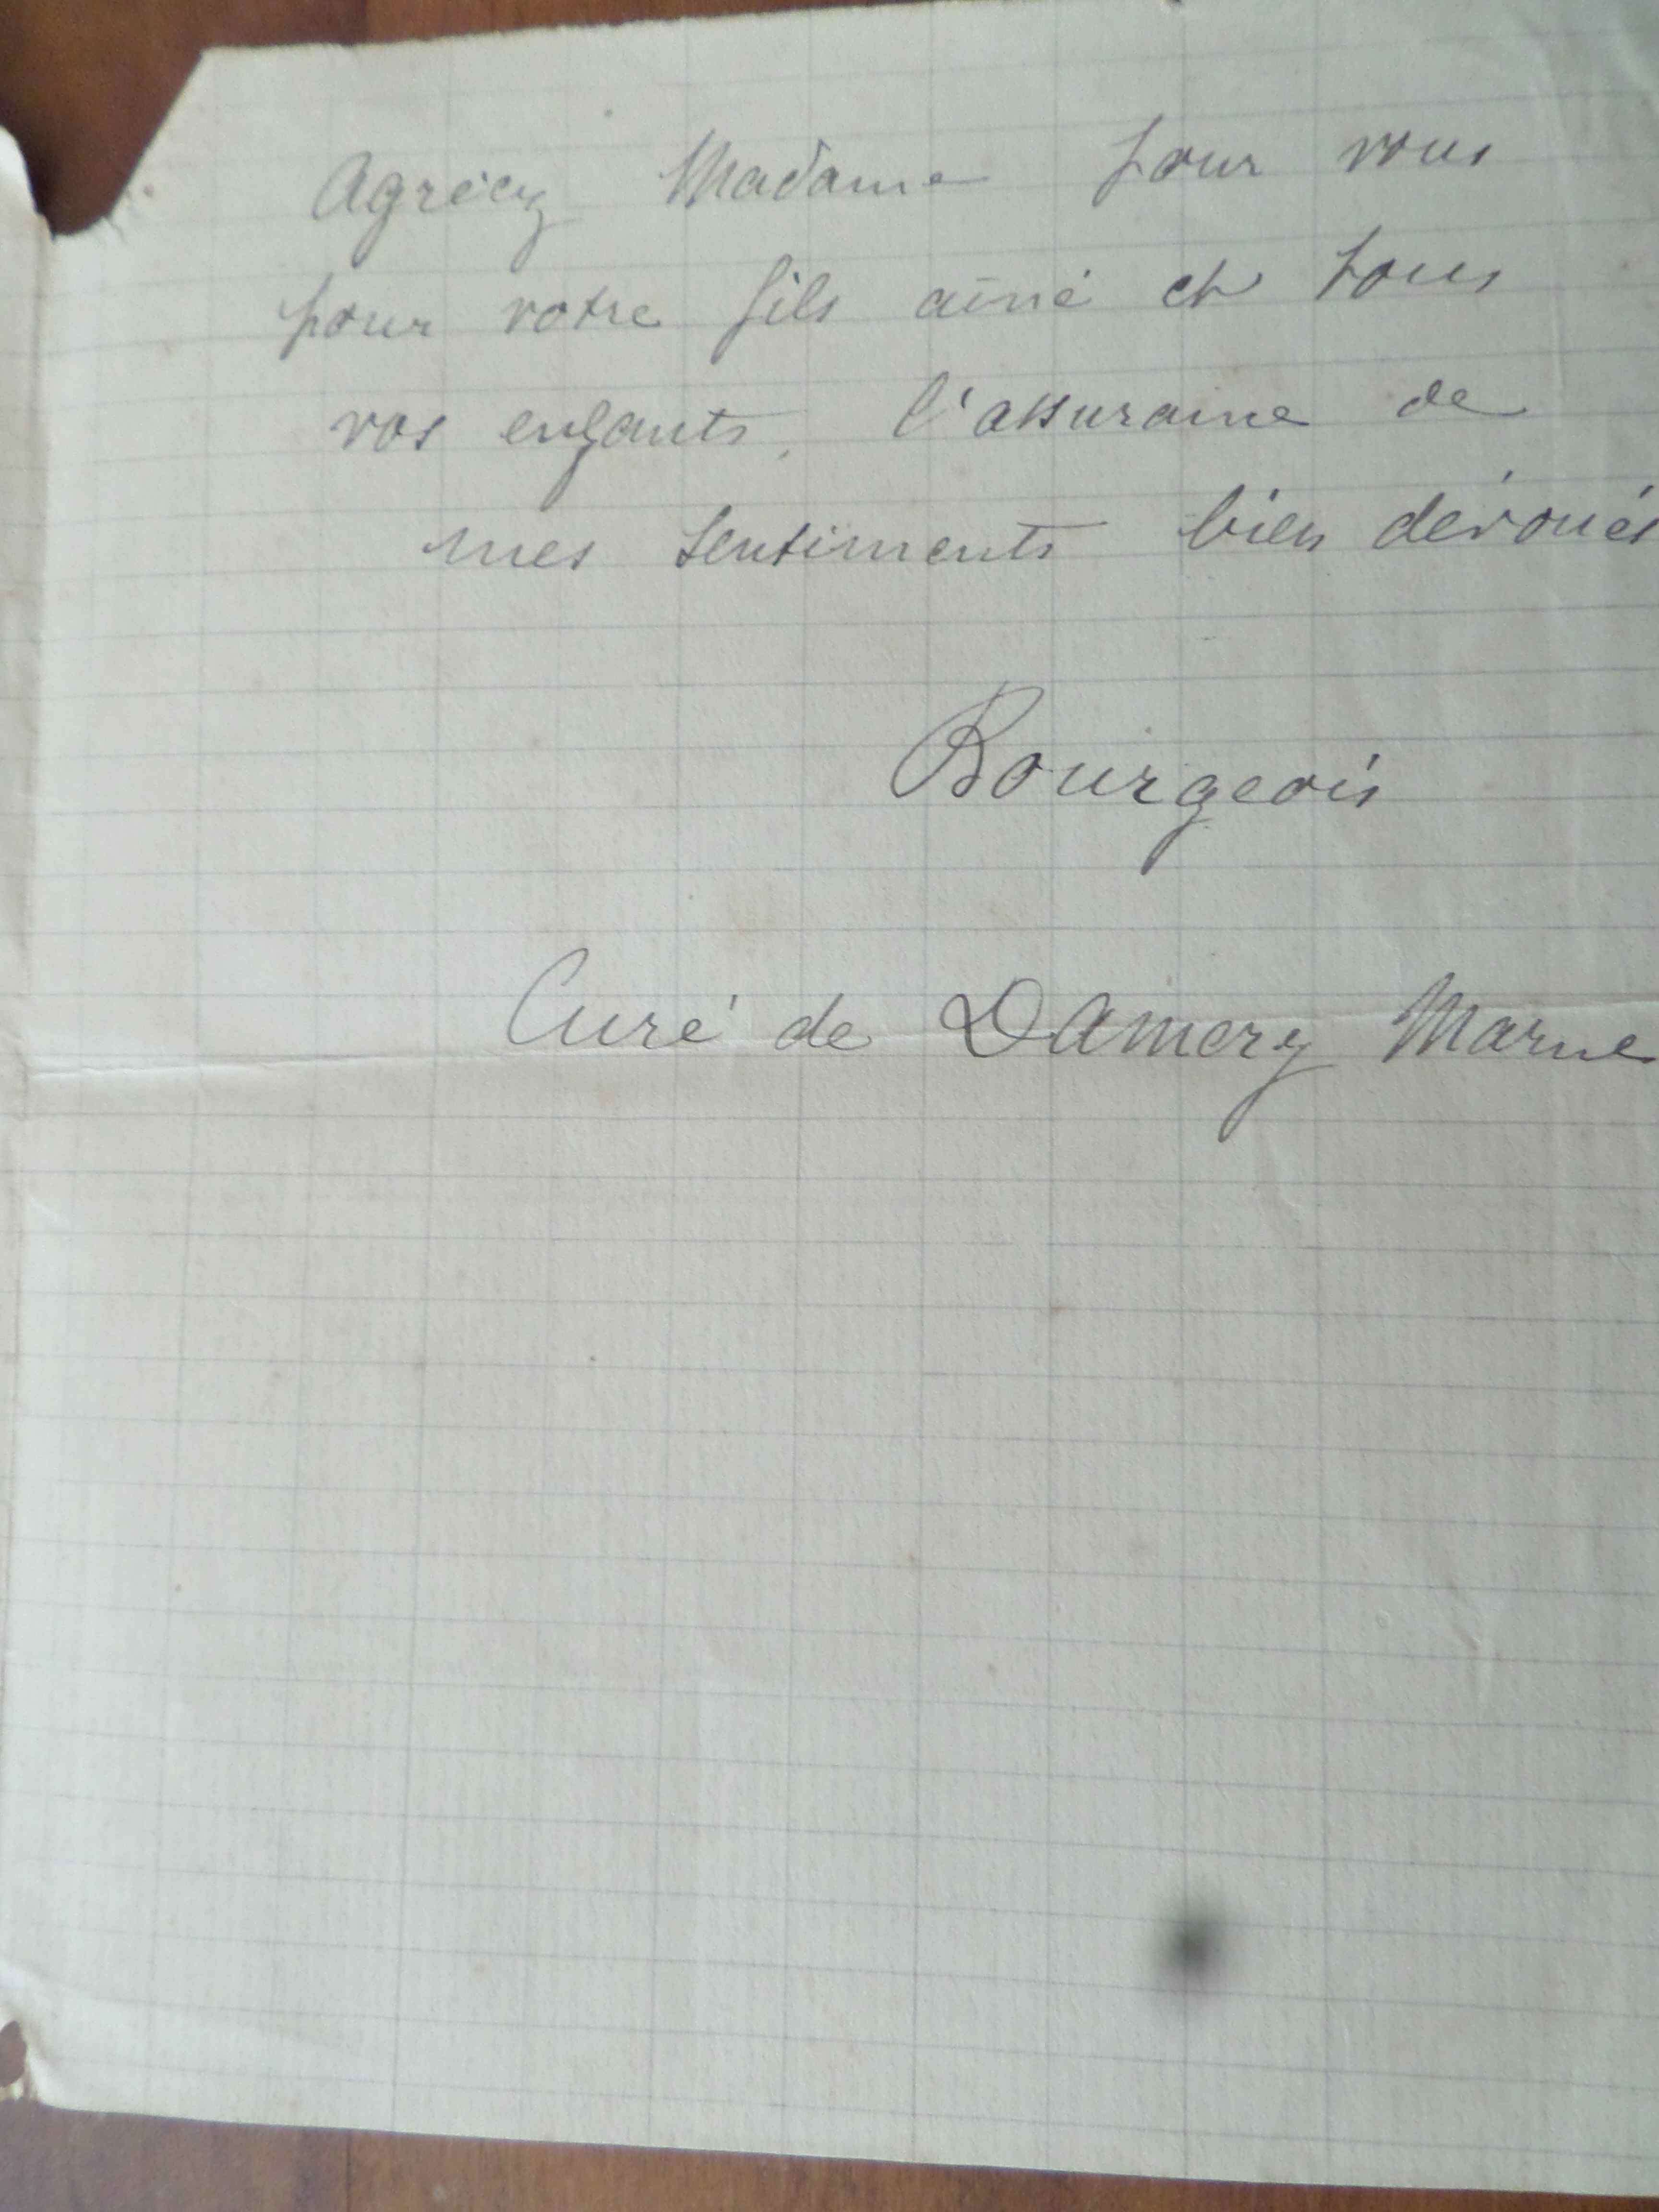 Agréez Madame pour vous
pour votre fils aîné et tous
vos enfants, l'assurance de
mes sentiments bien dévoués
Bourgeois
Curé de Damery Marne